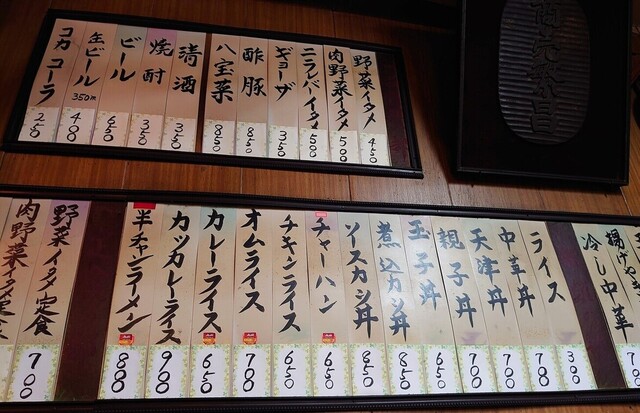 野菜イタメ 450
肉野菜イタメ 500
ニラレバイタメ 500
ギョーザ 350
酢豚 850
八宝菜 850
清酒 350
焼酎 350
ビール 650
缶ビール 350m 400
コカコーラ 250
冷し中華
ライス 300
中華丼 700
天津丼 700
親子丼 700
玉子丼 650
煮込カツ丼 850
ソースカツ丼 850
チャーハン 650
チキンライス 650
オムライス 700
カレーライス 650
カツカレーライス 900
半チャンラーメン 800
野菜イタメ定食 700
肉野菜イタメ定食